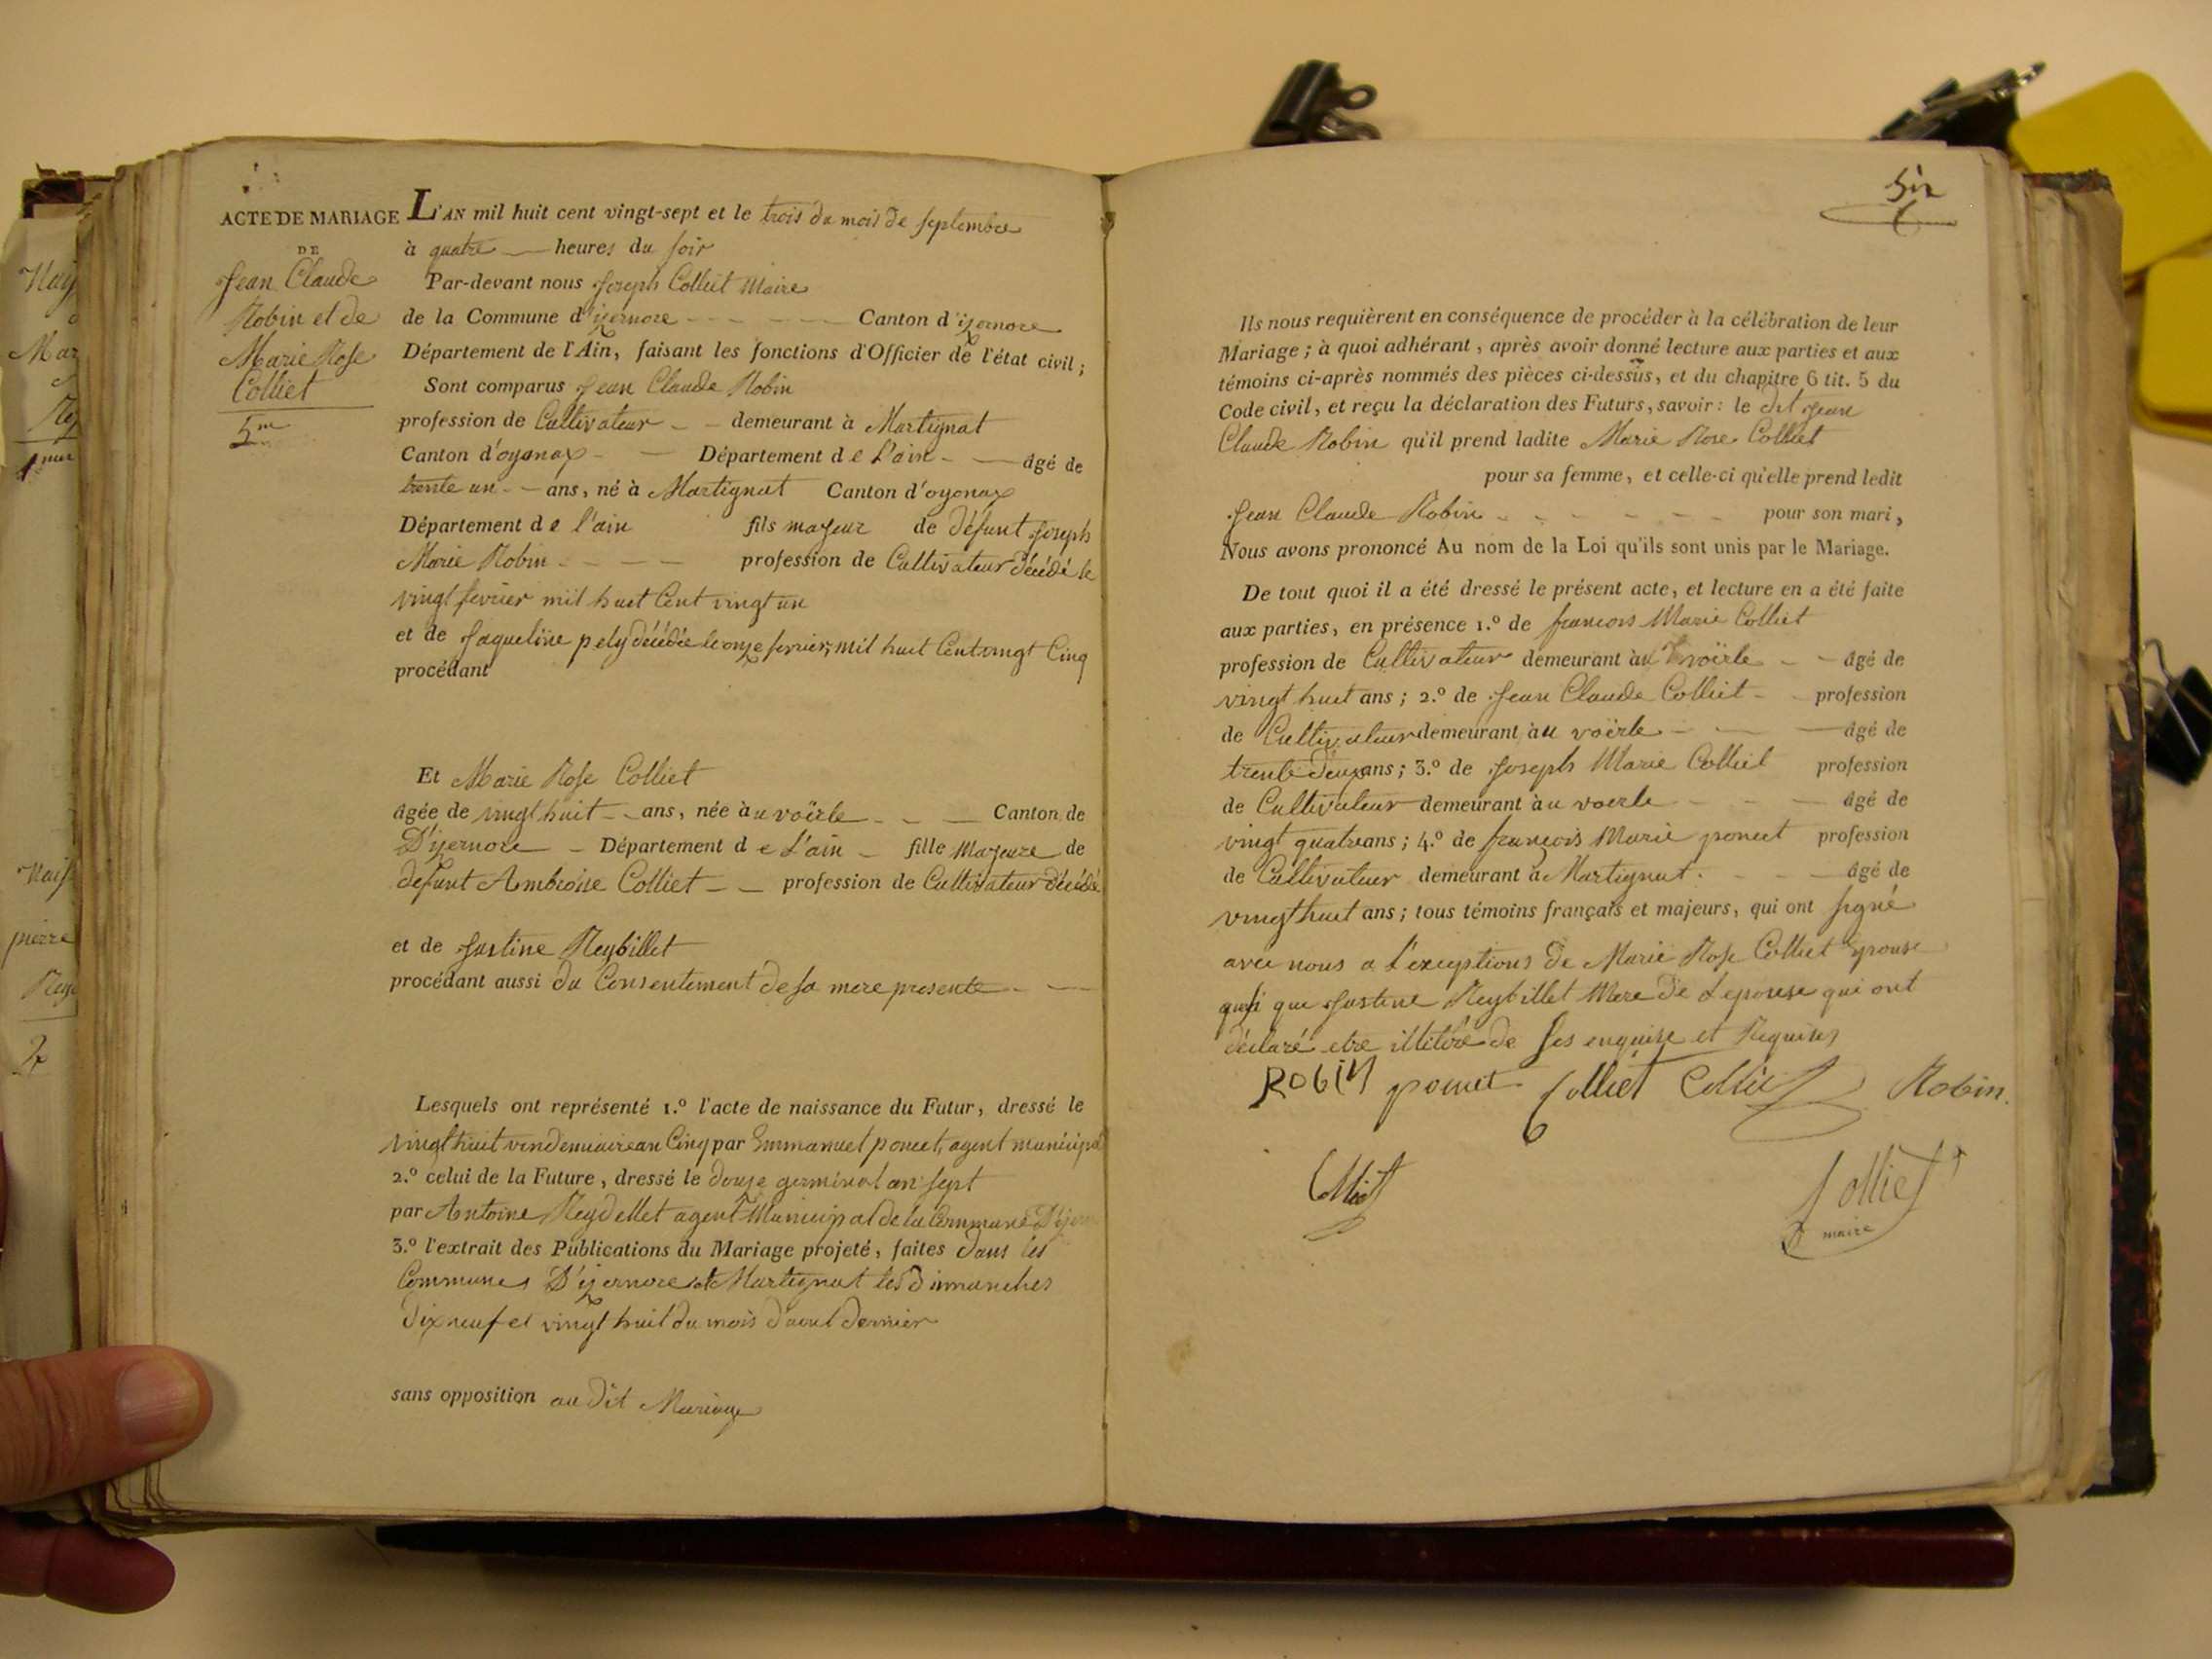 ACTE DE MARIAGE
DE
Jean Claude
Robin et de
Marie Rose
Colliet
5.me
L'AN mil huit cent vingt-sept et le trois du mois de septembre
à quatre heures du soir
Par-devant nous Joseph Colliet Maire
de la Commune d'izernore Canton d'izernore
Département de l'Ain, faisant les fonctions d'Officier de l'état civil;
Sont comparus Jean Claude Robin
profession de Cultivateur demeurant à Martignat
Canton d'oyonax Département de L'ain âgé de
trente un ans, né à Martignat Canton d'oyonax
Département de l'ain fils majeur de défunt joseph
Marie Robin profession de Cultivateur décédé le
vingt fevrier mil huit Cent vingt un
et de Jaqueline pely décédée le onze fevrier mil huit Cent vingt Cinq
procédant
Et Marie Rose Colliet
âgée de vingt huit ans, née au voërle Canton de
D'izernore Département de L'ain fille Majeure de
defunt Ambroise Colliet profession de Cultivateur décédé
et de Justine Reybillet
procédant aussi du Consentement de sa mere presente
Lesquels ont représenté 1.º l'acte de naissance du Futur, dressé le
vingt huit vendemiaire an Cinq par Emmanuel poncet, agent municipal
2.º celui de la Future, dressé le douze germinal an sept
par Antoine Reydellet agent Municipal de la Commune
3.º l'extrait des Publications du Mariage projeté, faites dans les
Communes D'izernore et Martignat les dimanches
dix neuf et vingt huit du mois d'aout dernier
sans opposition au dit Mariage
Six
Ils nous requièrent en conséquence de procéder à la célébration de leur
Mariage; à quoi adhérant, après avoir donné lecture aux parties et aux
témoins ci-après nommés des pièces ci-dessus, et du chapitre 6 tit. 5 du
Code civil, et reçu la déclaration des Futurs, savoir: le dit Jean
Claude Robin qu'il prend ladite Marie Rose Colliet
pour sa femme, et celle-ci qu'elle prend ledit
Jean Claude Robin pour son mari,
Nous avons prononcé Au nom de la Loi qu'ils sont unis par le Mariage.
De tout quoi il a été dressé le présent acte, et lecture en a été faite
aux parties, en présence 1.º de francois Marie Colliet
profession de Cultivateur demeurant au voërle âgé de
vingt huit ans; 2.º de Jean Claude Colliet profession
de Cultivateur demeurant au voërle âgé de
trente deux ans; 3.º de Joseph Marie Colliet profession
de Cultivateur demeurant au voerle âgé de
vingt quatre ans; 4.º de françois Marie poncet profession
de Cultivateur demeurant à Martignat. âgé de
vingt huit ans; tous témoins français et majeurs, qui ont signé
avec nous a L'exceptions de Marie Rose Colliet Epouse
que Justine Reybillet Mere de Lepouse qui ont
déclaré etre illitéré de ses enquise et Requises
ROBIN poncet Colliet Colliet Robin
Colliet
Colliet
maire